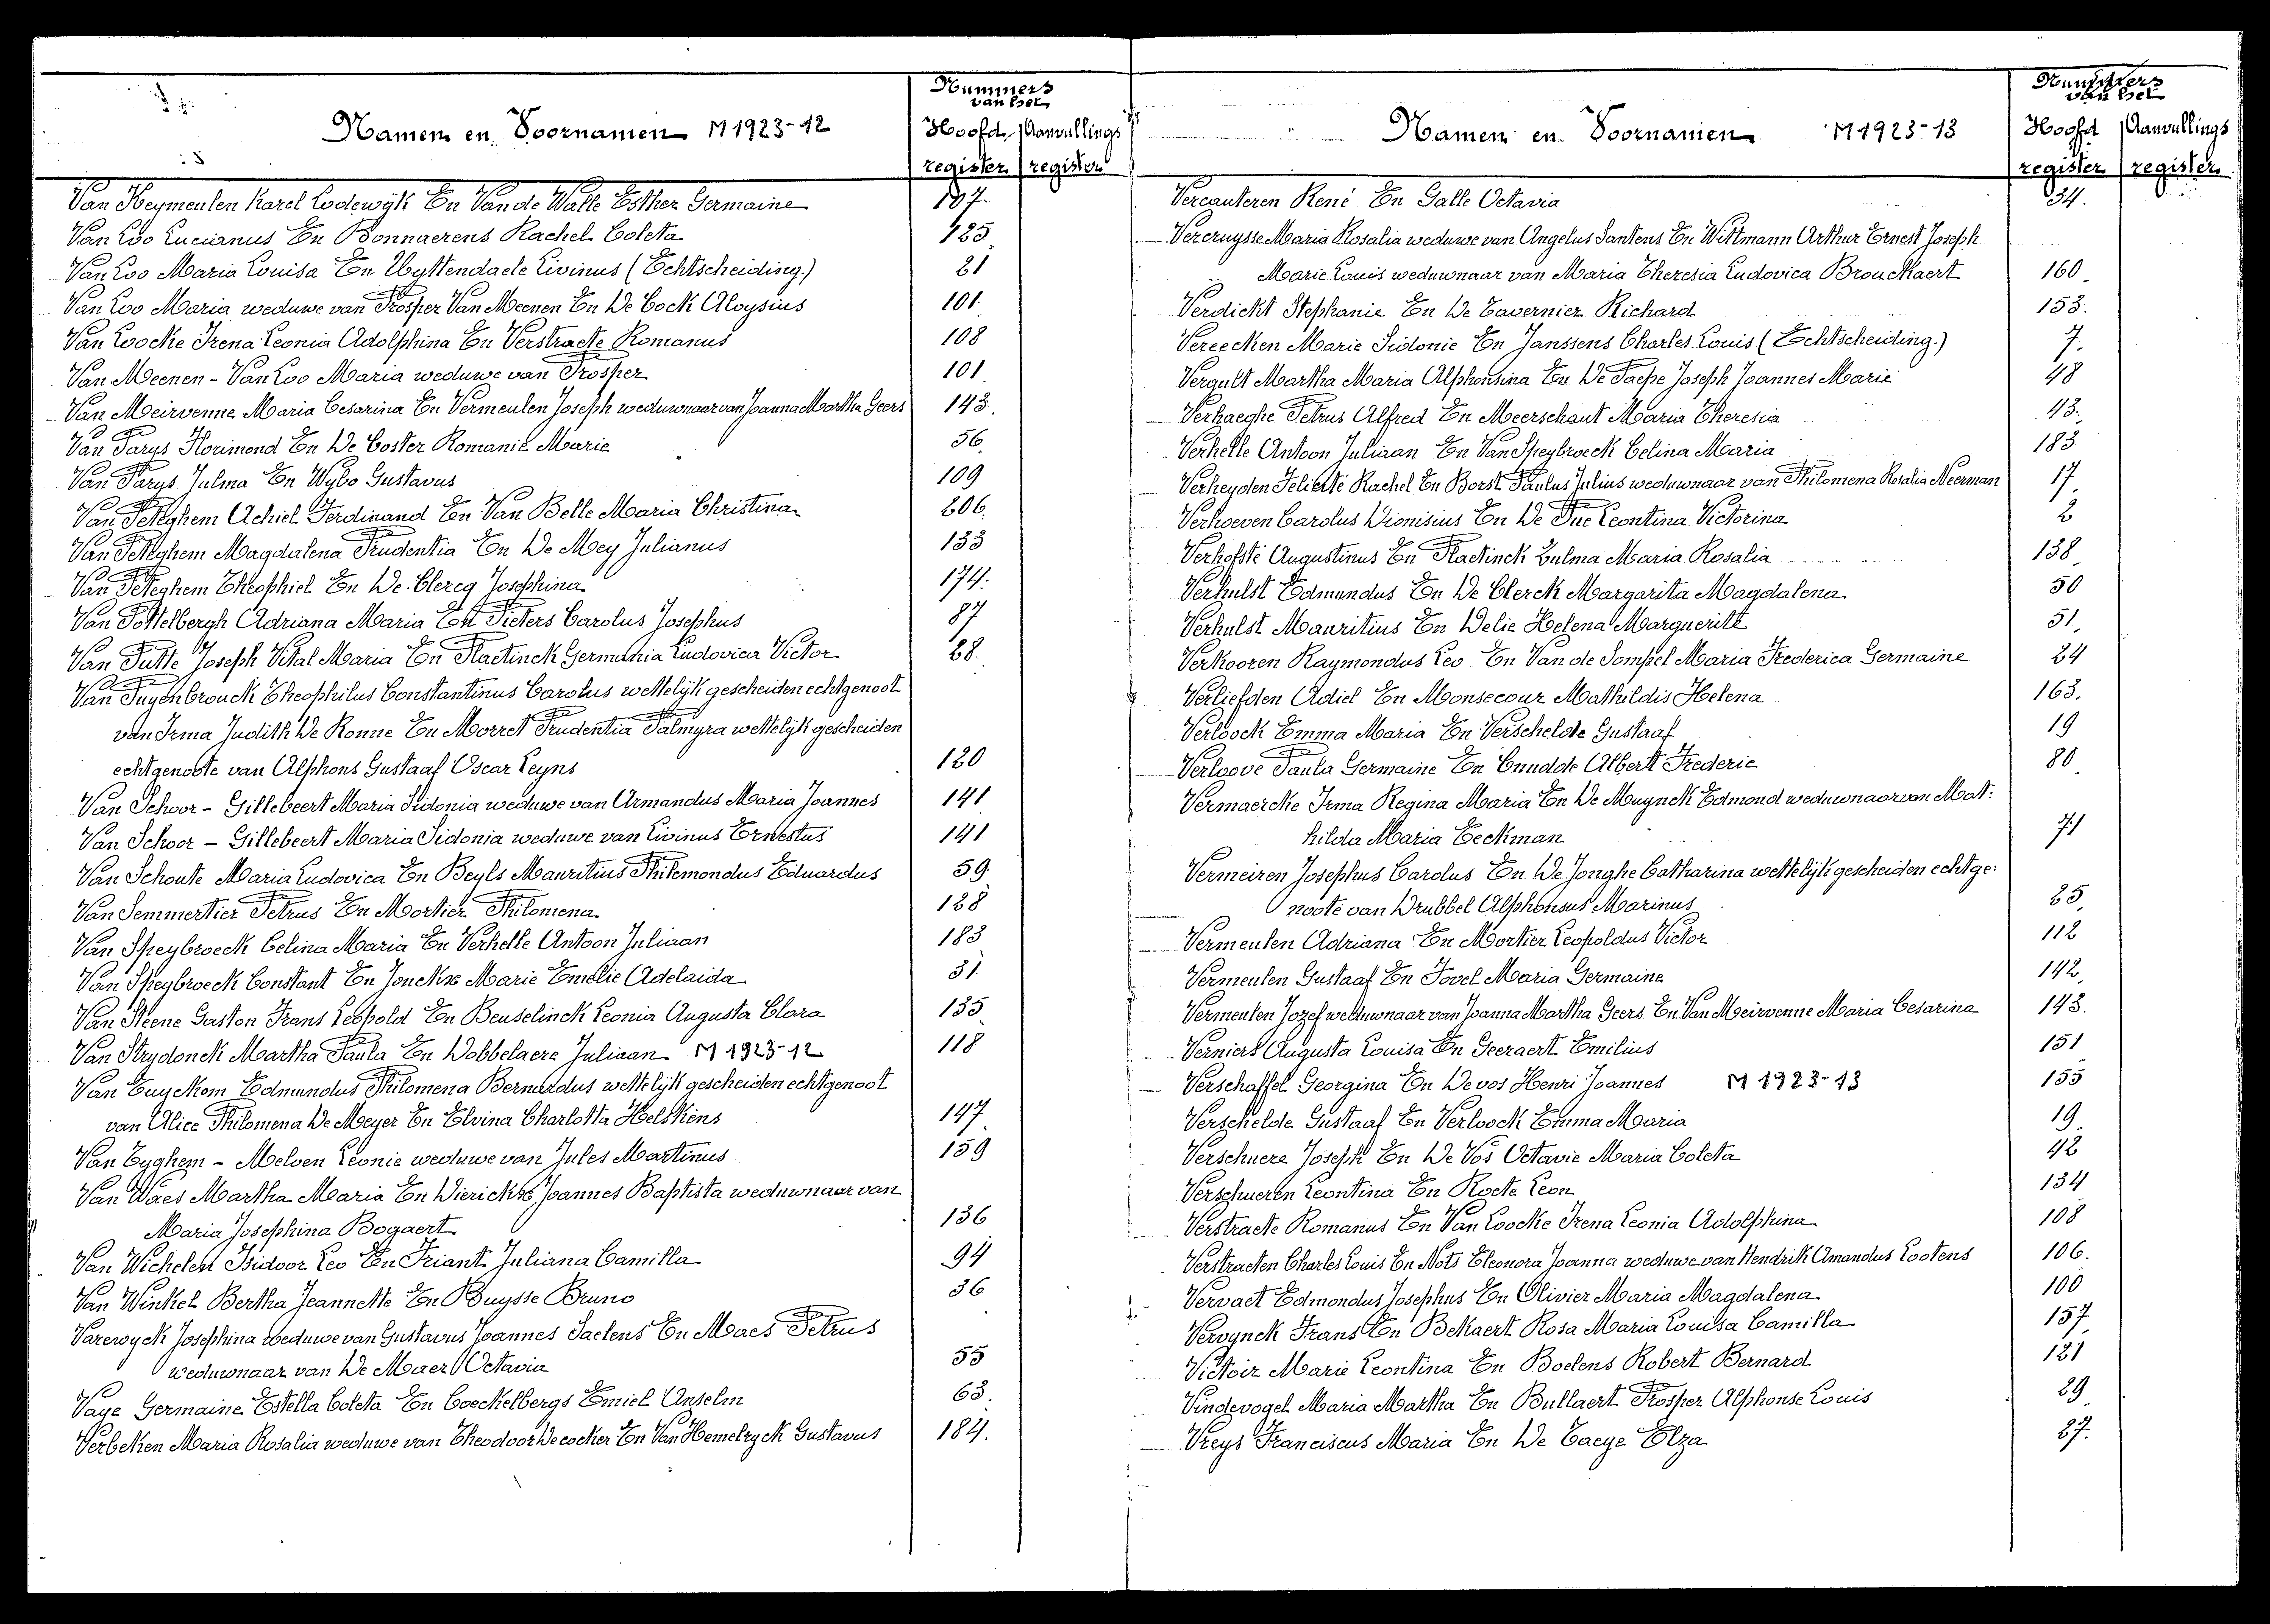 Namen en Voornamen M1923-12
Nummers van het
Hoofd register
Aanvullings register
Van Heymeulen Karel Lodewijk En Van de Walle Esther Germaine 107.
Van Loo Lucianus En Bonnaerens Rachel Coleta 125
Van Loo Maria Louisa En Uyttendaele Livinus (Echtscheiding.) 21
Van Loo Maria weduwe van Prosper Van Meenen En De Cock Aloysius 101
Van Loocke Irena Leonia Adolphina En Verstraete Romanus 108
Van Meenen - Van Loo Maria weduwe van Prosper 101
Van Meirvenne Maria Cesarina En Vermeulen Joseph weduwnaar van Joanna Martha Geers 143.
Van Parys Florimond En De Coster Romanie Marie 56
Van Parys Julma En Wybo Gustavus 109
Van Peteghem Achiel Ferdinand En Van Belle Maria Christina 206.
Van Peteghem Magdalena Prudentia En De Mey Julianus 133
Van Peteghem Theophiel En De Clercq Josephina 174.
Van Pottelbergh Adriana Maria En Pieters Carolus Josephus 87
Van Putte Joseph Vital Maria En Plactinck Germania Ludovica Victor 28.
Van Puyenbrouck Theophilus Constantinus Carolus wettelijk gescheiden echtgenoot
van Irma Judith De Ronne En Morret Prudentia Palmyra wettelijk gescheiden
echtgenoote van Alphons Gustaaf Oscar Leyns 120
Van Schoor - Gillebeert Maria Sidonia weduwe van Armandus Maria Joannes 141
Van Schoor - Gillebeert Maria Sidonia weduwe van Livinus Ernestus 141
Van Schoute Maria Ludovica En Beyls Mauritius Philemondus Eduardus 59
Van Semmertier Petrus En Mortier Philomena 128
Van Speybroeck Celina Maria En Verhelle Antoon Juliaan 183
Van Speybroeck Constant En Jonckx Marie Emelie Adelaida 31
Van Steene Gaston Frans Leopold En Beuselinck Leonia Augusta Clara 135
Van Strydonck Martha Paula En Dobbelaere Juliaan M 1923-12 118
Van Tuyckom Edmundus Philomena Bernardus wettelijk gescheiden echtgenoot
van Alice Philomena De Meyer En Elvina Charlotta Helskens 147
Van Tyghem - Meloen Leonie weduwe van Jules Martinus 159
Van Waes Martha Maria En Dierickx Joannes Baptista weduwnaar van
Maria Josephina Bogaert 136
Van Wichelen Isidoor Leo En Friant Juliana Camilla 94
Van Winkel Bertha Jeannette En Buysse Bruno 36
Varewyck Josephina weduwe van Gustavus Joannes Saelens En Maes Petrus
weduwnaar van De Maer Octavia 55
Vaye Germaine Estella Coleta En Coeckelbergs Emiel Anselm 63.
Verbeken Maria Rosalia weduwe van Theodoor Decocker En Van Hemelryck Gustavus 184.
Namen en Voornamen M1923-13
Nummers van het
Hoofd register
Aanvullings register
Vercauteren René En Galle Octavia 34.
Vercruysse Maria Rosalia weduwe van Angelus Santens En Wittmann Arthur Ernest Joseph
Marie Louis weduwnaar van Maria Theresia Ludovica Brouckaert 160
Verdickt Stephanie En De Tavernier Richard 153.
Vereecken Marie Sidonie En Janssens Charles Louis (Echtscheiding.) 7.
Vergult Martha Maria Alphonsina En De Paepe Joseph Joannes Marie 48
Verhaeghe Petrus Alfred En Meerschaut Maria Theresia 43.
Verhelle Antoon Juliaan En Van Speybroeck Celina Maria 183
Verheyden Felicité Rachel En Borst Paulus Julius weduwnaar van Philomena Rosalia Neerman 17
Verhoeven Carolus Dionisius En De Pue Leontina Victorina 2
Verhofsté Augustinus En Plactinck Zulma Maria Rosalia 138
Verhulst Edmundus En De Clerck Margarita Magdalena 50
Verhulst Mauritius En Delie Helena Marguerite 51
Verkooren Raymondus Leo En Van de Sompel Maria Frederica Germaine 24
Verliefden Adiel En Monsecour Mathildis Helena 163.
Verloock Emma Maria En Verschelde Gustaaf 19
Verloove Paula Germaine En Cnudde Albert Frederic 80
Vermaercke Irma Regina Maria En De Muynck Edmond weduwnaar van Mat:
hilda Maria Eeckman 71
Vermeiren Josephus Carolus En De Jonghe Catharina wettelijk gescheiden echtge:
noote van Drubbel Alphonsus Marinus 25
Vermeulen Adriana En Mortier Leopoldus Victor 112
Vermeulen Gustaaf En Fovel Maria Germaine 142
Vermeulen Jozef weduwnaar van Joanna Martha Geers En Van Meirvenne Maria Cesarina 143.
Verniers Augusta Louisa En Geeraert Emilius 151
Verschaffel Georgina En De vos Henri Joannes M 1923-13 155
Verschelde Gustaaf En Verloock Emma Maria 19
Verschuere Joseph En De Vos Octavie Maria Coleta 42
Verschueren Leontina En Roete Leon 134
Verstraete Romanus En Van Loocke Irena Leonia Adolphina 108
Verstraeten Charles Louis En Nots Eleonora Joanna weduwe van Hendrik Amandus Lootens 106.
Vervaet Edmondus Josephus En Olivier Maria Magdalena 100
Vervynck Frans En Bekaert Rosa Maria Louisa Camilla 157
Victoir Marie Leontina En Boelens Robert Bernard 121
Vindevogel Maria Martha En Bullaert Prosper Alphonse Louis 29
Vreys Franciscus Maria En De Taeye Elza 27.